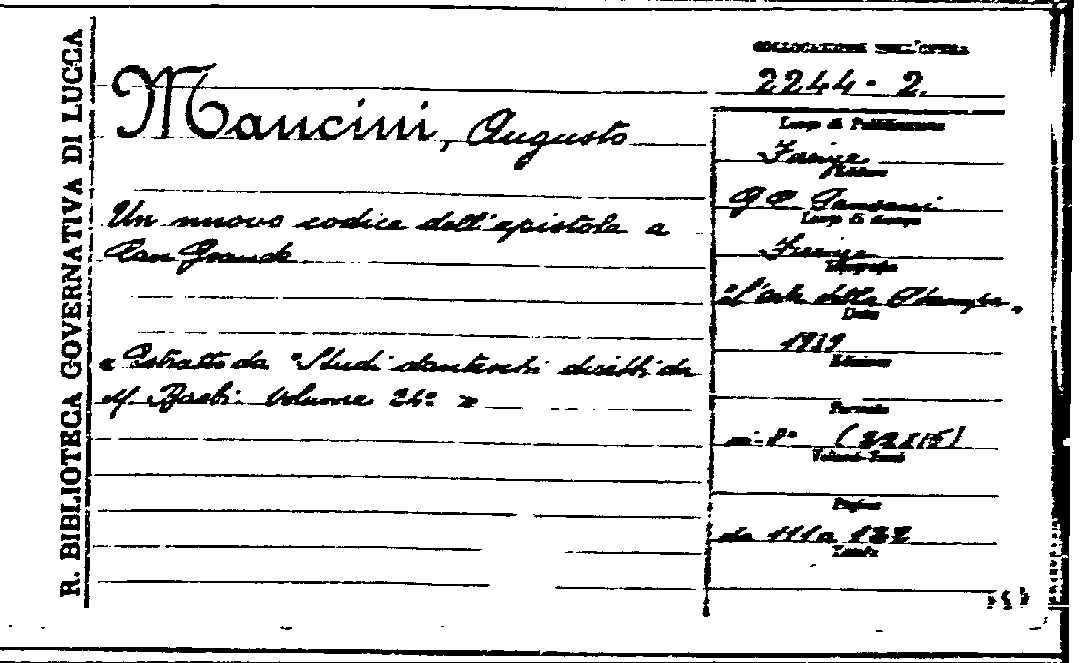 R. BIBLIOTECA GOVERNATIVA DI LUCCA
COLLOCAZIONE DELL'OPERA
2244 - 2.
Mancini, Augusto
Luogo di Pubblicazione
Firenze
Editore
G C Sansoni
Luogo di stampa
Firenze
Tipografia
"L'arte della Stampa"
Data
1939
Edizione
Un nuovo codice dell'epistola a
Can Grande
« Estratto da "Studi danteschi diretti da
M. Barbi. Volume 24° »
Formato
in-8° (22x15)
Volumi-Tomi
Pagine
da 111 a 122
Tavole